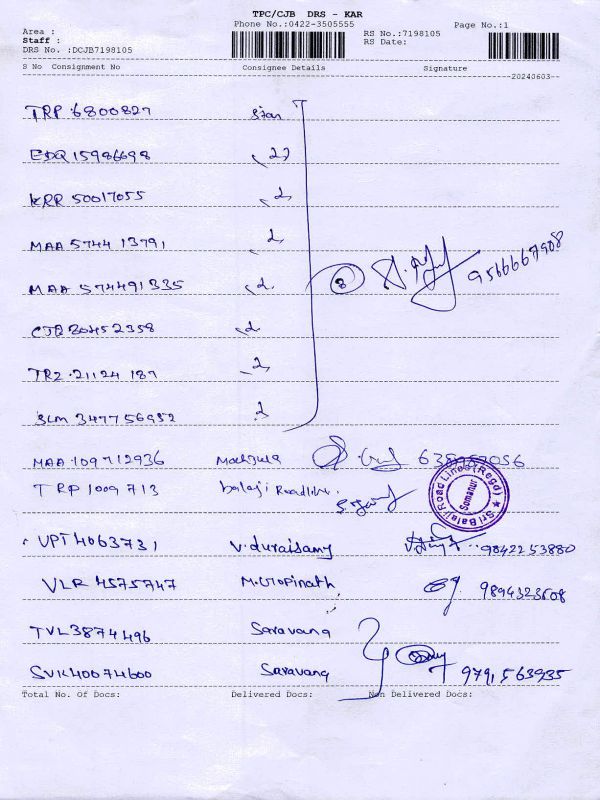 TPC/CJB DRS - KAR
Phone No.:0422-3505555
Page No.:1
Area :
Staff :
DRS No. :DCJB7198105
RS No.:7198105
RS Date:
S No Consignment No Consignee Details Signature
20240603
TRP 6800827 Sian
EDQ 15986698 "
KRR 50017055 "
MAA 5744 13791 "
MAA 574491335 " 8 9566667908
CJB 20452358 "
TRZ 21124 187 "
SLM 347756952 "
MAA 109712936
TRP 1009713 balaji Roadlines
Sri Balaji Road Lines (Regd) ★ Somanur
VPT 4063731 V. duraisamy 9842253880
VLR 4575747 M. Gopinath 9894323608
TVL3874496 Saravana
SVK40074600 Saravana 9791563935
Total No. Of Docs: Delivered Docs: Non Delivered Docs: